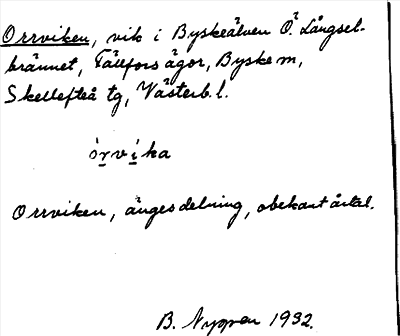 Orrviken, vik i Byskeälven Ö. Långsel-
brännet, Fällfors ägor, Byske m,
Skellefteå tg, Västerb. l.
órvíka
Orrviken, änges delning, obekant årtal.
B. Nygren 1932.